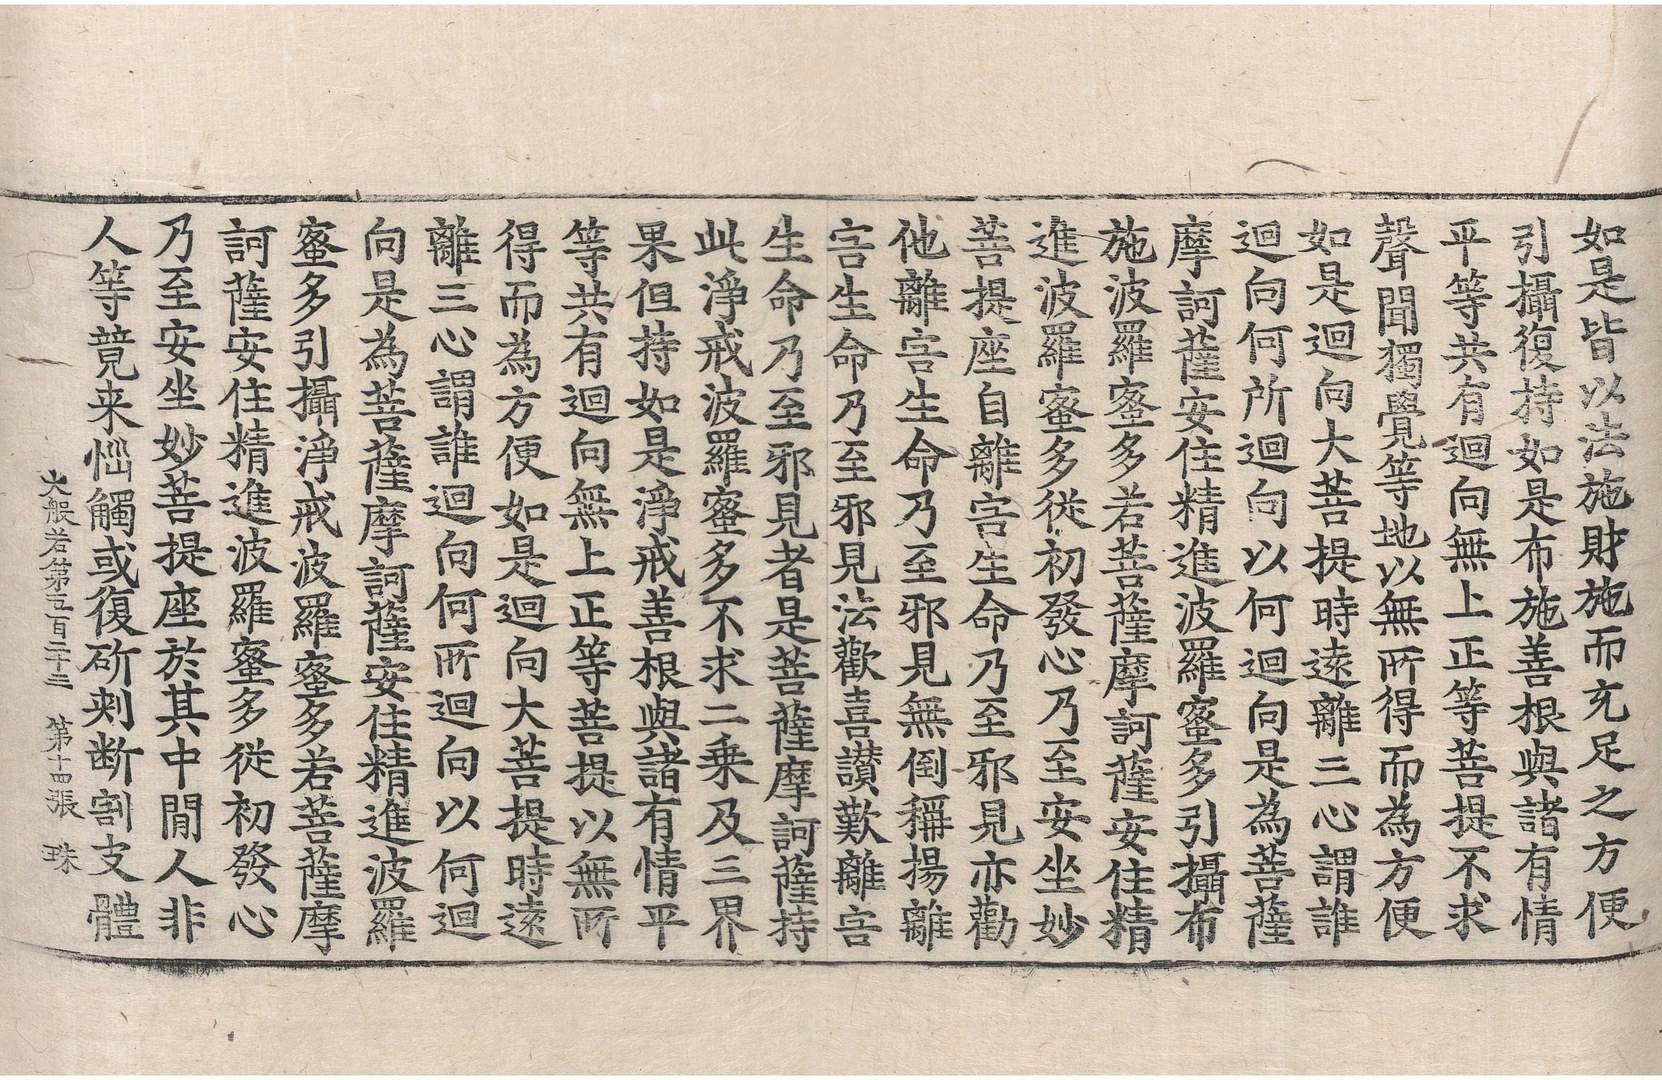 如是皆以法施財施而充足之方便
引攝復持如是布施善根與諸有情
平等共有迴向無上正等菩提不求
聲聞獨覺等地以無所得而為方便
如是迴向大菩提時遠離三心謂誰
迴向何所迴向以何迴向是為菩薩
摩訶薩安住精進波羅蜜多引攝布
施波羅蜜多若菩薩摩訶薩安住精
進波羅蜜多從初發心乃至安坐妙
菩提座自離害生命乃至邪見亦勸
他離害生命乃至邪見無倒稱揚離
害生命乃至邪見法歡喜讚歎離害
生命乃至邪見者是菩薩摩訶薩持
此淨戒波羅蜜多不求二乘及三界
果但持如是淨戒善根與諸有情平
等共有迴向無上正等菩提以無所
得而為方便如是迴向大菩提時遠
離三心謂誰迴向何所迴向以何迴
向是為菩薩摩訶薩安住精進波羅
蜜多引攝淨戒波羅蜜多若菩薩摩
訶薩安住精進波羅蜜多從初發心
乃至安坐妙菩提座於其中閒人非
人等競来惱觸或復斫刺断割支體
大般若第五百二十三 第十四張 珠